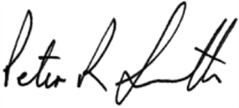 Peter R Smith